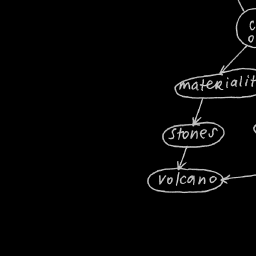 materialit
stones
volcano